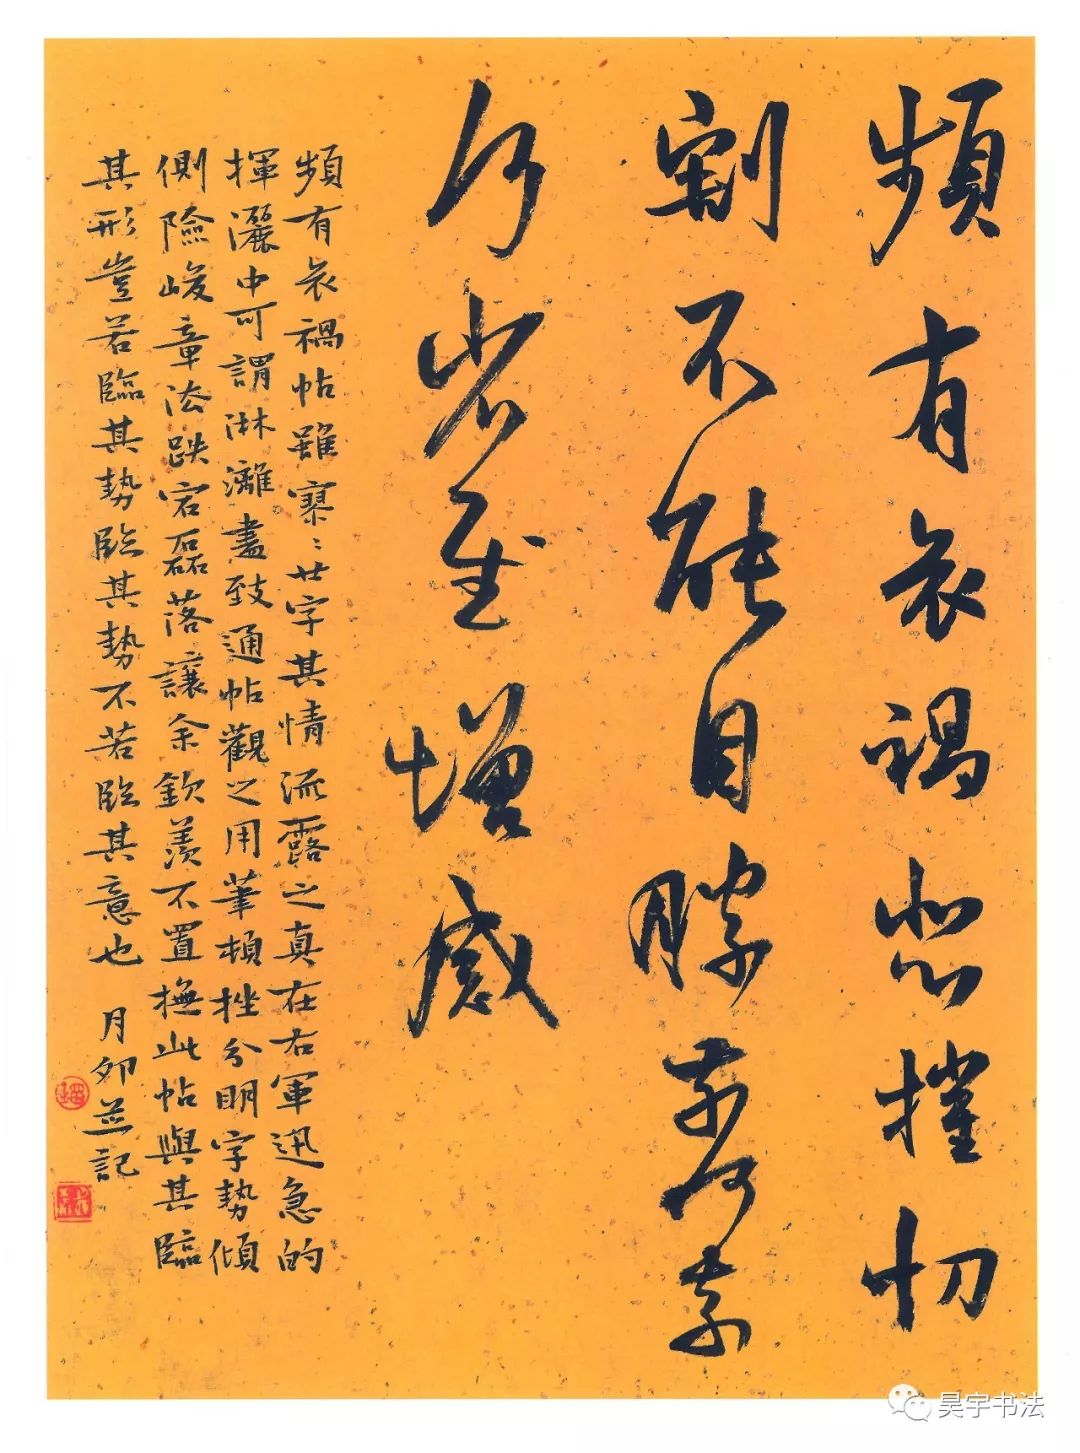 頻有哀禍悲摧切
割不能自勝奈何奈
何省慰增感
頻有哀禍帖雖寥〻廿字其情流露之真在右軍迅急的
揮灑中可謂淋灕盡致通帖觀之用筆頓挫分明字勢傾
側險峻章法跌宕磊落讓余欽羨不置撫此帖與其臨
其形豈若臨其勢臨其勢不若臨其意也 月卯並記
昊宇书法